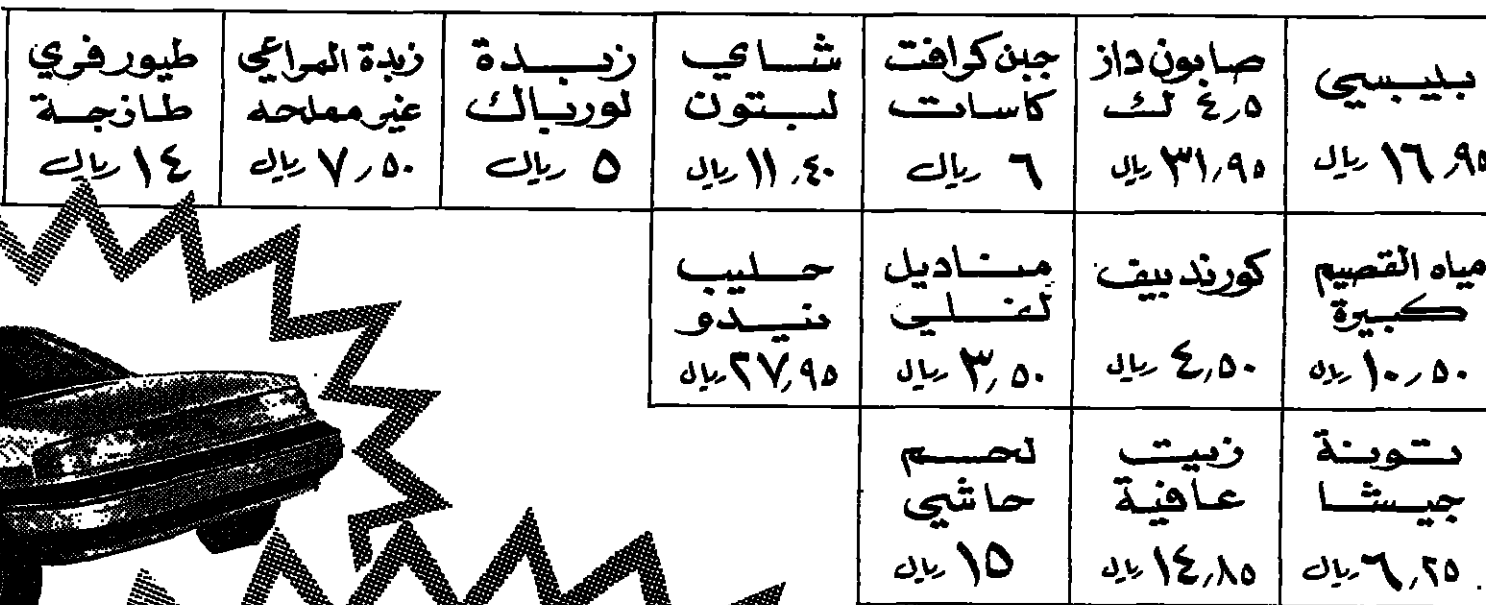 بليبسي
١٦,٩٥ ريال
صابون داز
٤,٥ لك
٣١,٩٥ ريال
جبن كرافت
كاسات
٦ ريال
شاي
لبتون
١١,٤٠ ريال
زبدة
لورباك
٥ ريال
زبدة المراعي
غير مملحه
٧,٥٠ ريال
طيور فري
طازجة
١٤ ريال
مياه القصيم
كبيرة
١٠,٥٠ ريال
كورند بيف
٤,٥٠ ريال
مناديل
٣,٥٠ ريال
حليب
نيدو
٢٧,٩٥ ريال
تونة
جيشا
٦,٢٥ ريال
زيت
عافية
١٤,٨٥ ريال
لحم
حاشي
١٥ ريال